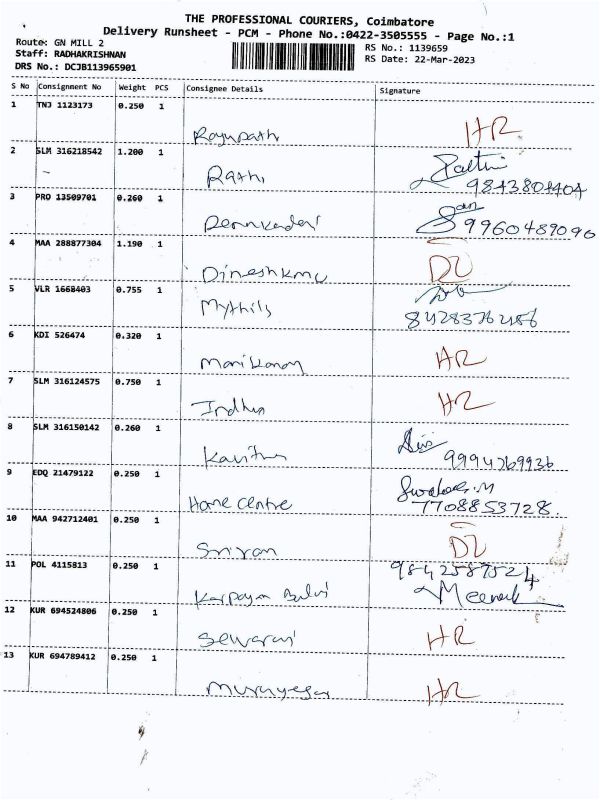 THE PROFESSIONAL COURIERS, Coimbatore
Delivery Runsheet - PCM - Phone No.:0422-3505555 - Page No.:1
Route: GN MILL 2
Staff: RADHAKRISHNAN
DRS No.: DCJB113965901
RS No.: 1139659
RS Date: 22-Mar-2023
S No Consignment No Weight PCS Consignee Details Signature
1 TNJ 1123173 0.250 1
HR
2 SLM 316218542 1.200 1
Rathi 9843804404
3 PRO 13509701 0.260 1
9960489090
4 MAA 288877304 1.190 1
DL
5 VLR 1668403 0.755 1
Mythily
6 KDI 526474 0.320 1
HR
7 SLM 316124575 0.750 1
Indhu HR
8 SLM 316150142 0.260 1
Kavitha 9994769936
9 EDQ 21479122 0.250 1
Home Centre 7708853728
10 MAA 942712401 0.250 1
DL
11 POL 4115813 0.250 1
9842587524
12 KUR 694524806 0.250 1
HR
13 KUR 694789412 0.250 1
HR